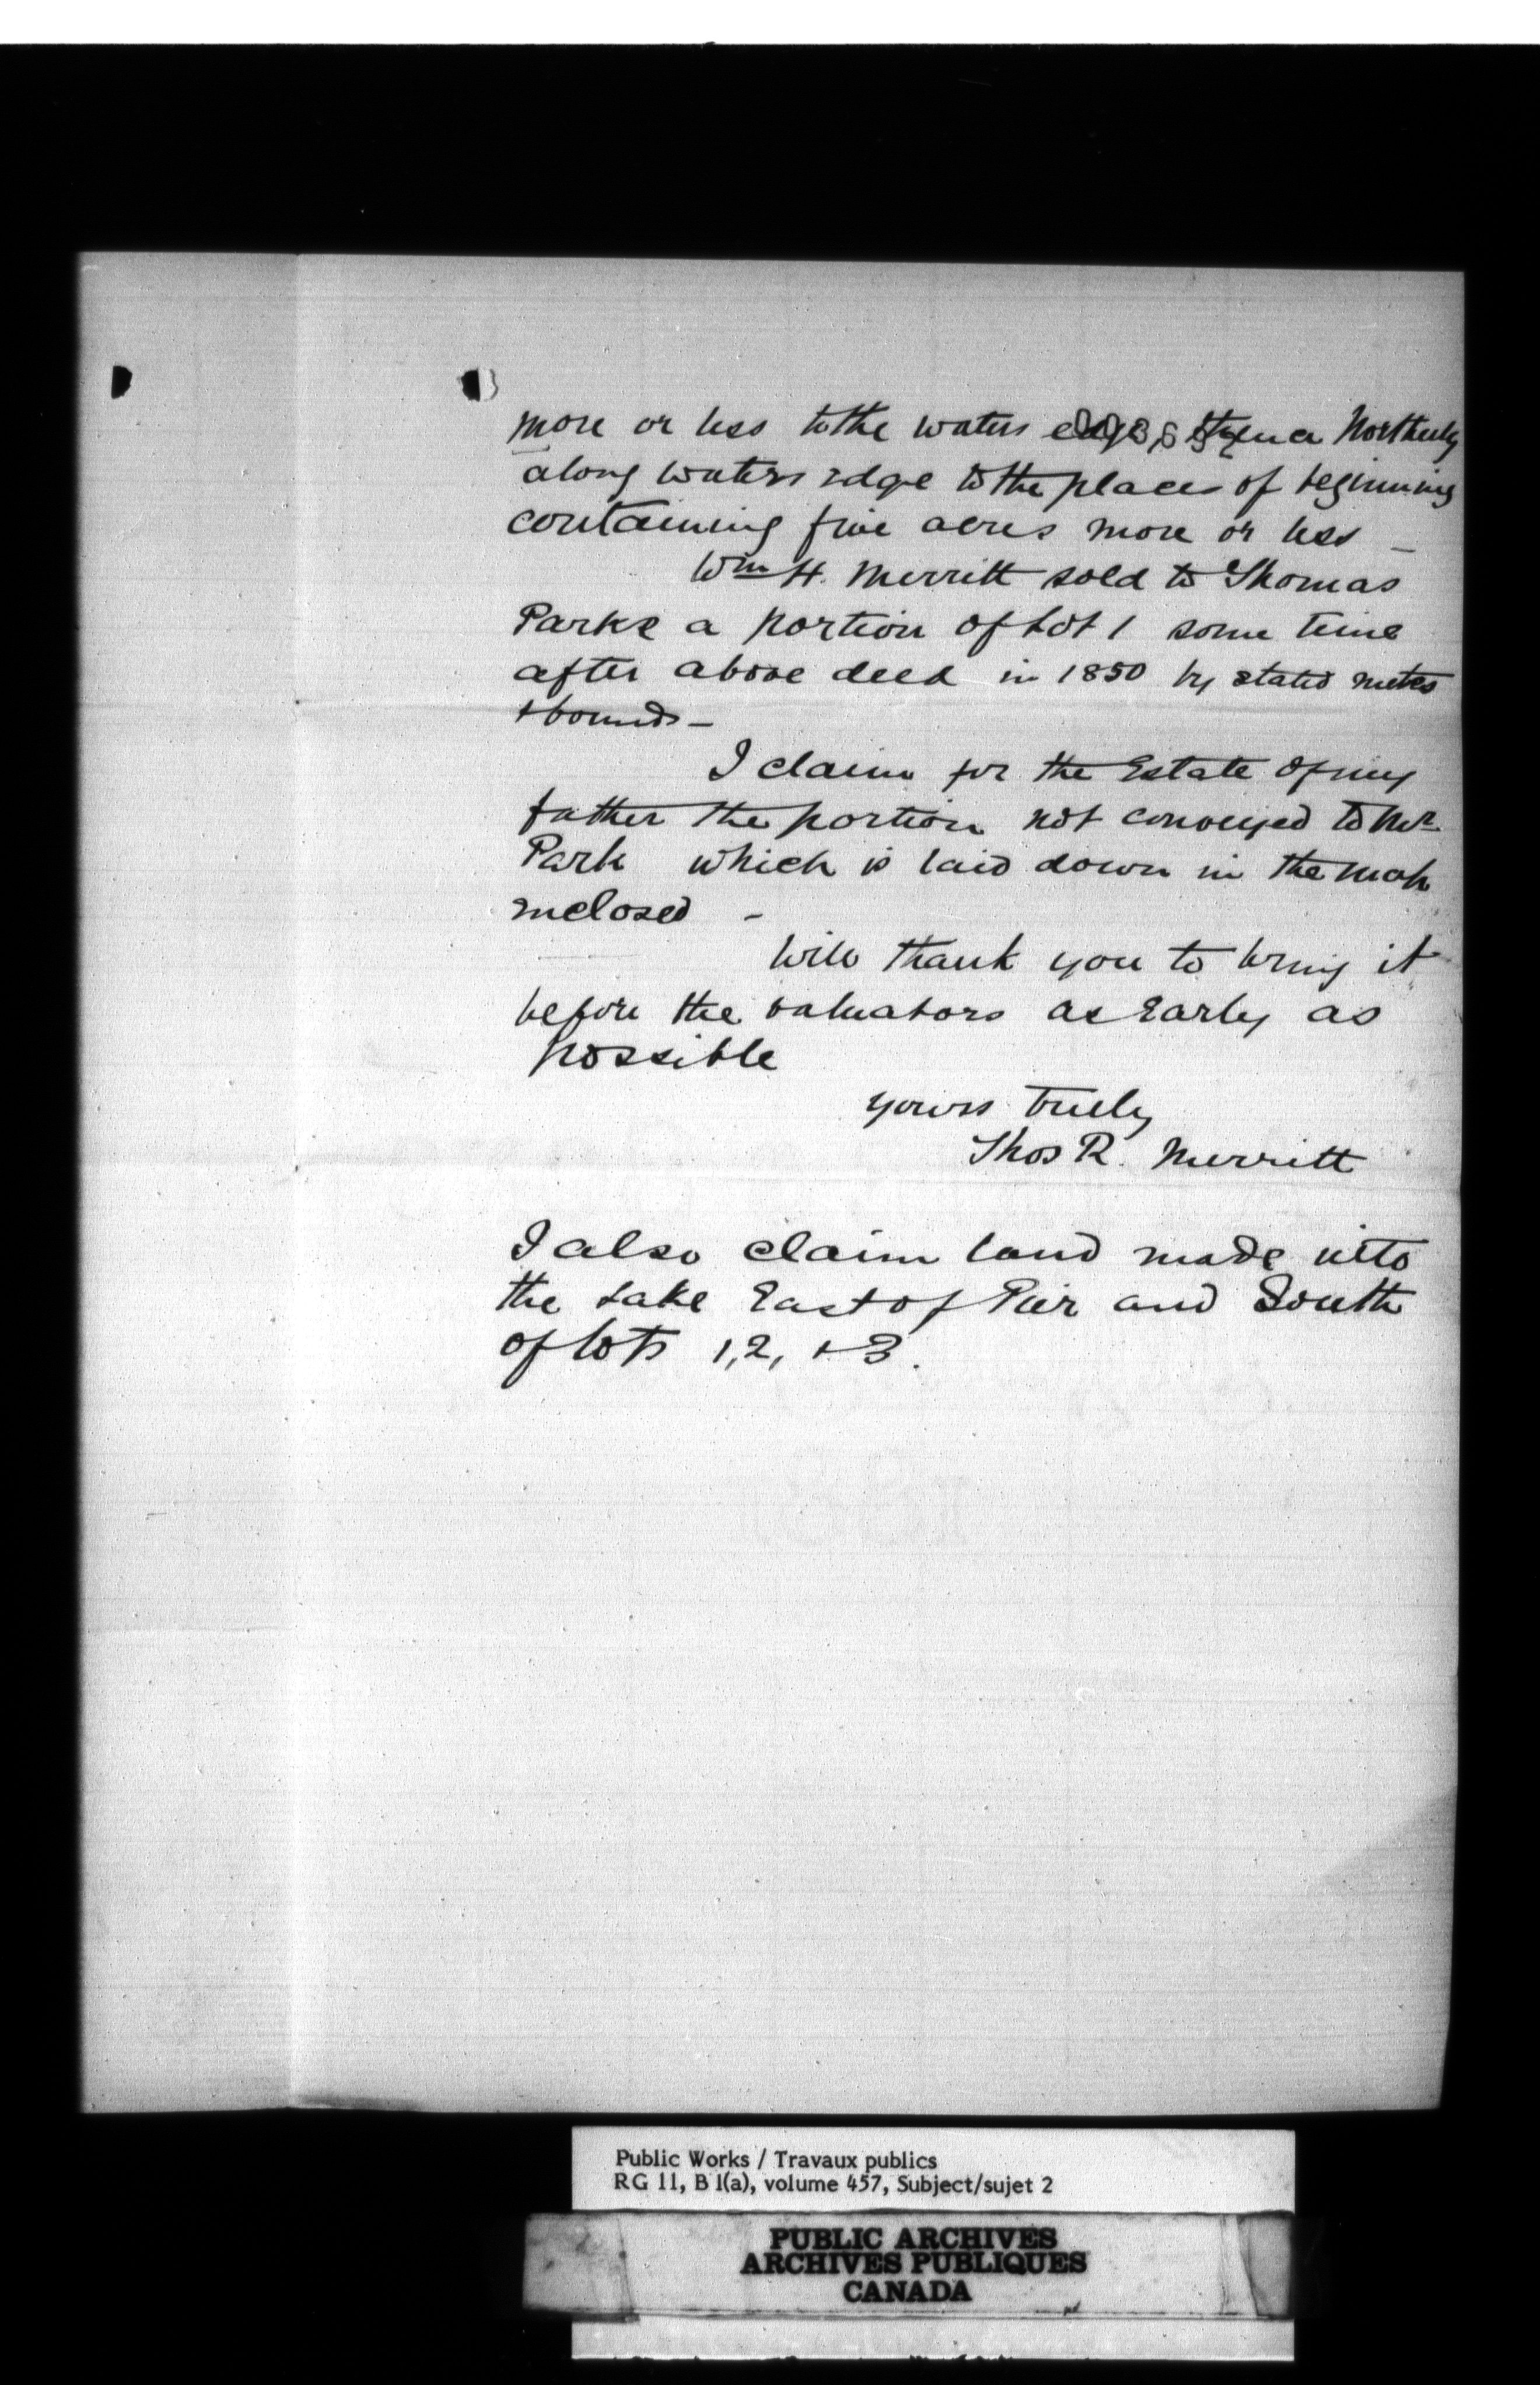 more or less to the waters edge, thence Northerly
along waters edge to the places of beginning
containing five acres more or less –
Wm H. Merritt sold to Thomas
Parke a portion of Lot 1 some time
after above deed in 1850 by stated metes
& bounds –
I claim for the Estate of my
father the portion not conveyed to Mr
Park which is laid down in the map
enclosed –
Will thank you to bring it
before the valuators as Early as
possible
yours truly
Thos R. Merritt
I also claim land made into
the Lake East of Pier and South
of lots 1, 2, & 3.
Public Works / Travaux publics
RG 11, B 1(a), volume 457, Subject/sujet 2
PUBLIC ARCHIVES
ARCHIVES PUBLIQUES
CANADA